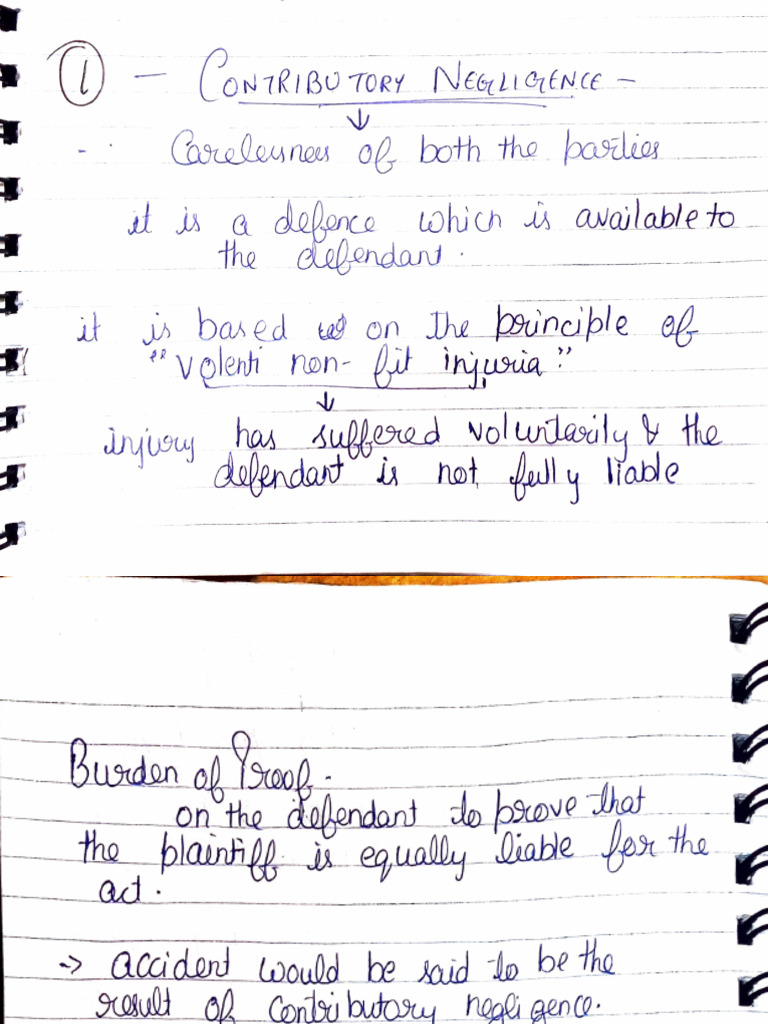 1 - CONTRIBUTORY NEGLIGENCE -
↓
- Carelesness of both the parties
it is a defence which is available to
the defendant.
it is based on the principle of
"Volenti non-fit injuria"
↓
injury has suffered voluntarily & the
defendant is not fully liable
Burden of Proof -
on the defendant to prove that
the plaintiff is equally liable for the
act.
-> accident would be said to be the
result of contributory negligence.